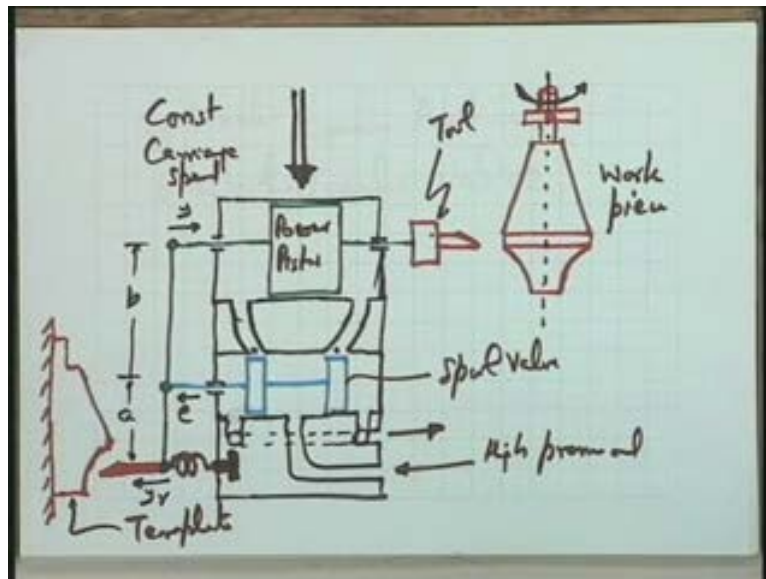 Const
Carriage
speed
Tool
Work
piece
y
Power
Piston
b
Spool valve
e
a
High pressure oil
yr
Template